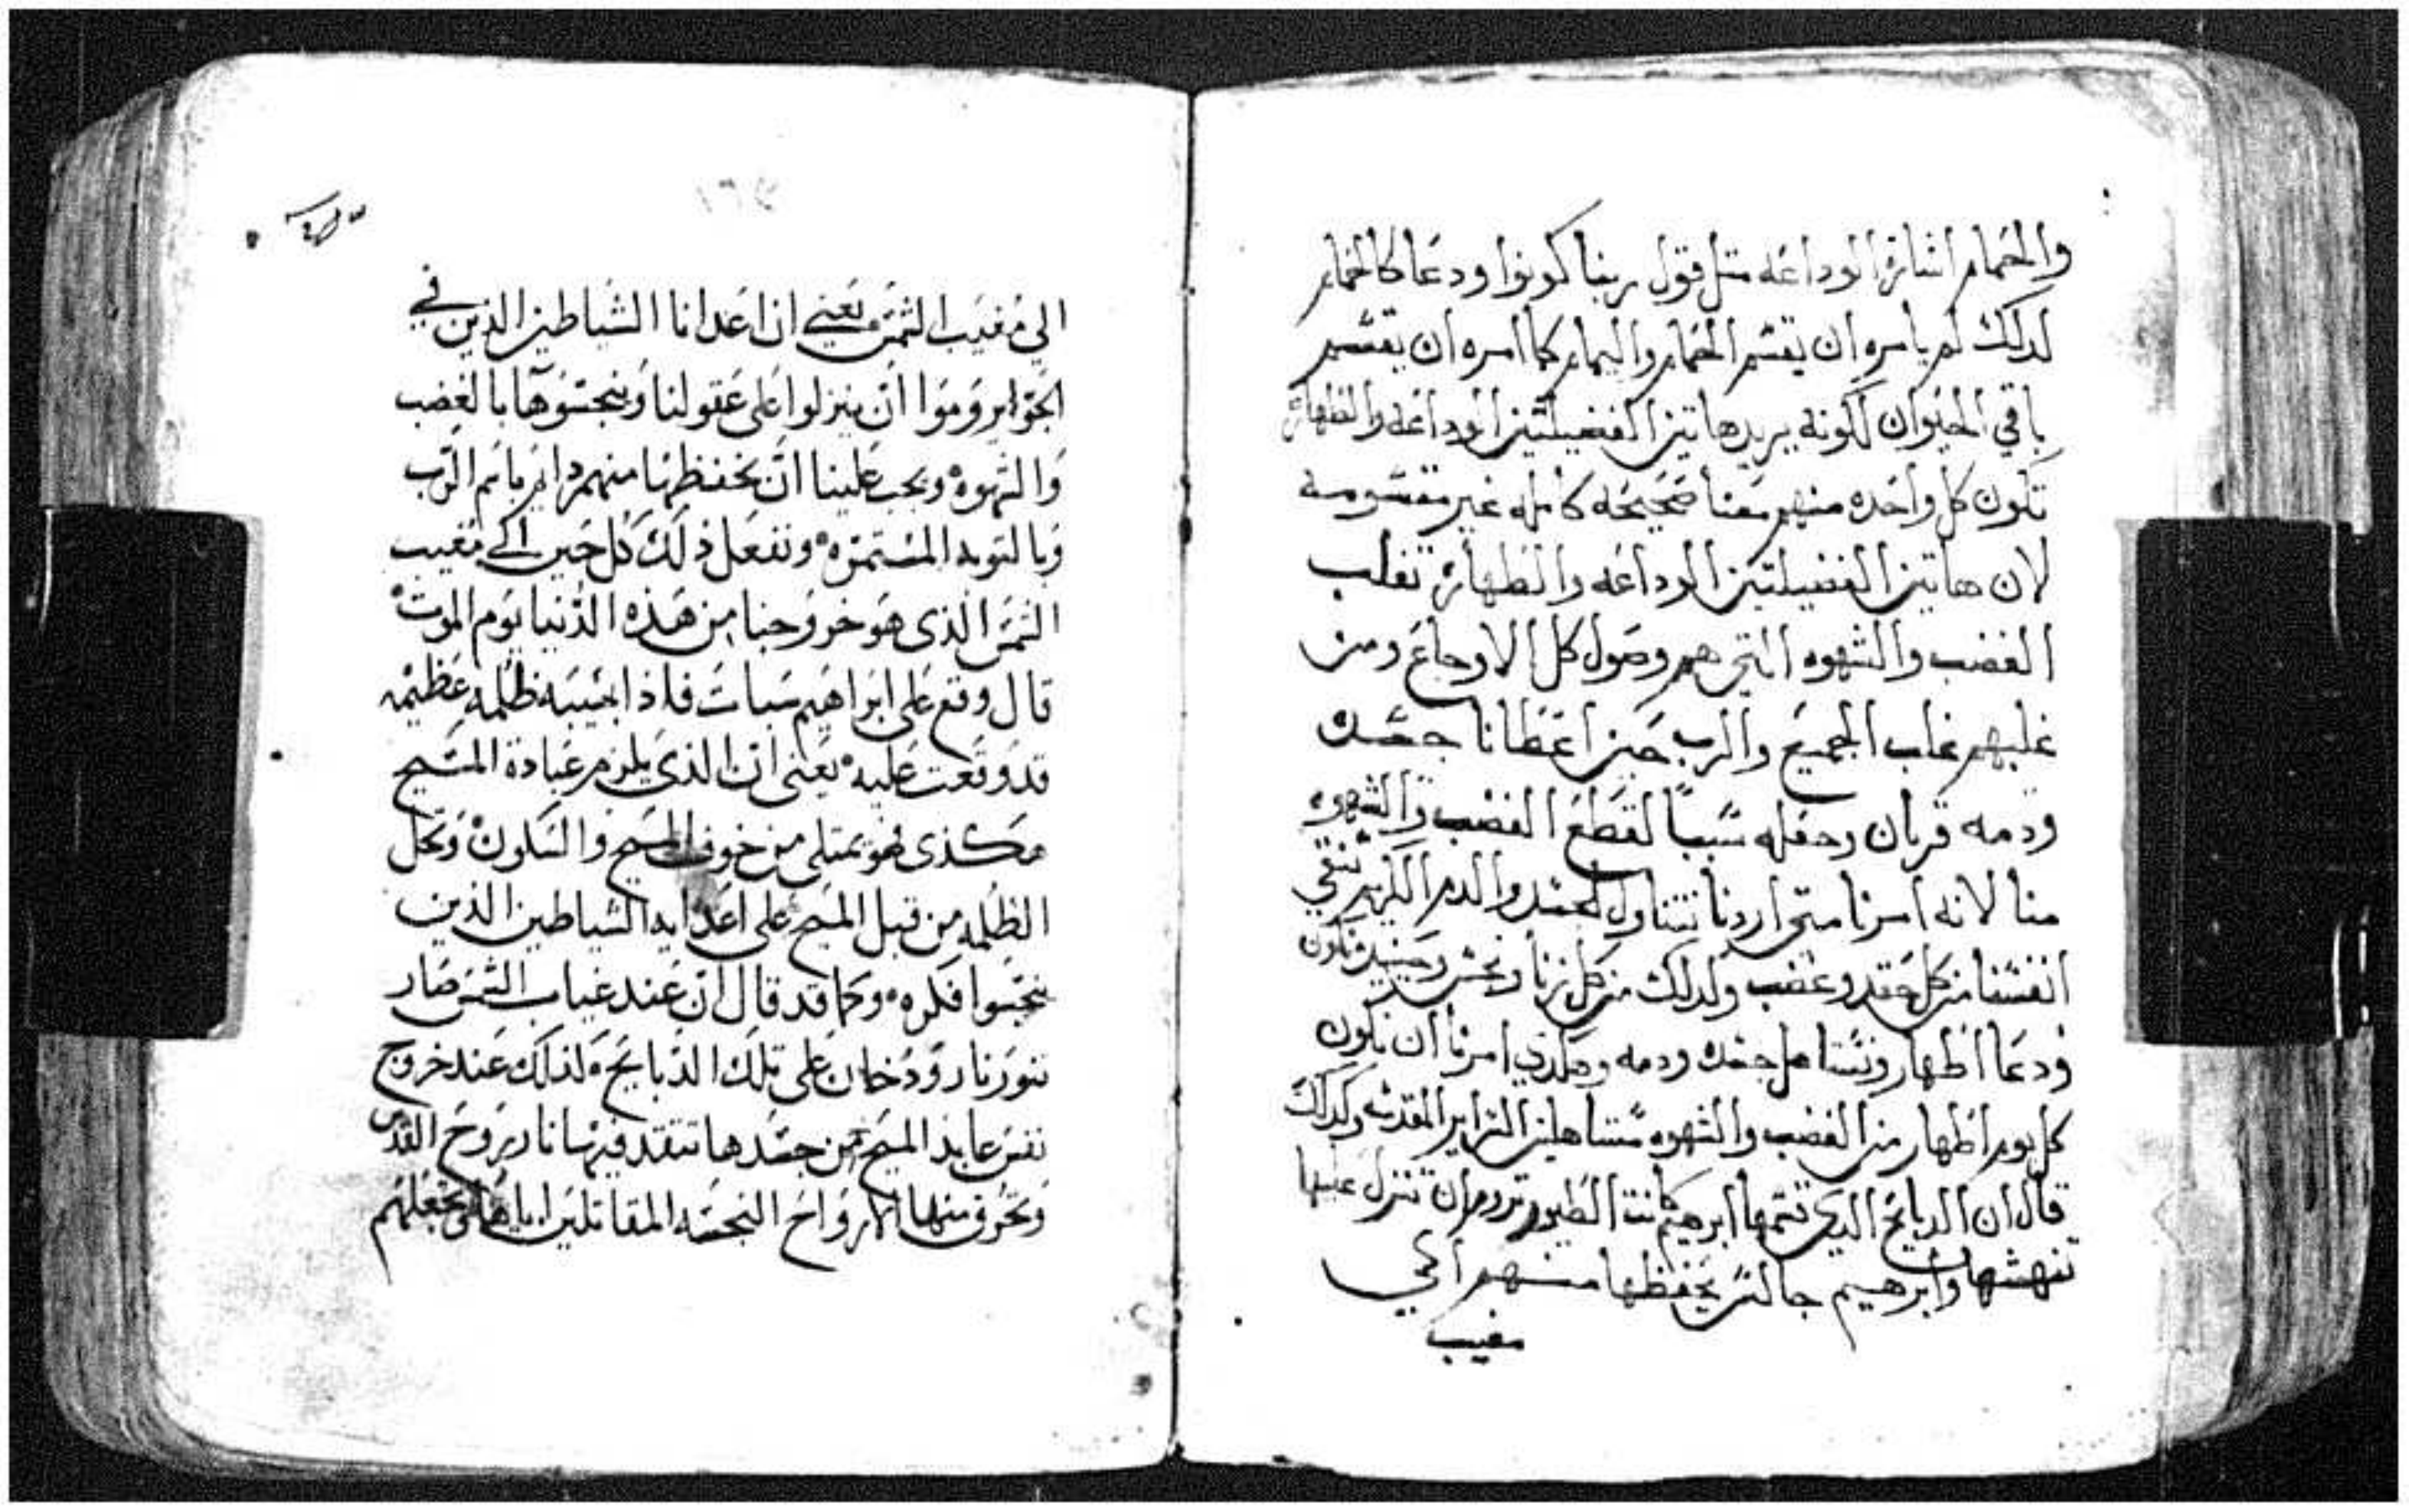 والحمام اشارة الوداعه مثل قول ربنا كونوا ودعا كالحمام
لدلك لم يامره ان يقسم الحمام واليمام كما امره ان يقسم
باقي الحيوان لكونه يريد هاتين الفضيلتين الوداعه والطهاره
تكون كل واحده منهم معنا صحيحه كامله غير مقسومه
لان هاتين الفضيلتين الوداعه والطهاره تغلب
الغضب والشهوه التي هم وصول كل الاوجاع ومن
غلبهم غلب الجميع والرب حين اعطانا جسده
ودمه قربان وجعله سبباً لقطع الغضب والشهوه
منا لانه امرنا متى اردنا نتناول الجسد والدم الكريم ننقي
انفسنا من كل حقد وغضب ولدلك من كل زنا ونجس وحينيد نكون
ودعا اطهار ونستاهل جسده ودمه وهكدي امرنا ان نكون
كل يوم اطهار من الغضب والشهوه مستاهلين السراير المقدسه وكدلك
قال ان الدبايح الدي قسمها ابرهيم كانت الطيور تروم ان تنزل عليها
تنهشها وابرهيم جالس يحفظها منهم الي
مغيب
الي مغيب الشمس يعني ان اعدانا الشياطين الذين في
الجو يروموا ان ينزلوا على عقولنا وينجسوها بالغضب
والشهوه ويجب علينا ان نحفظها منهم دايم باسم الرب
وبالتوبه المستمره ونفعل ذلك كل حين الى مغيب
الشمس الذى هو خروجنا من هذه الدنيا يوم الموت
قال وقع على ابراهيم سبات فاذا بهيبه ظلمه عظيمه
قد وقعت عليه يعنى ان الذى يلزم عبادة المسيح
هكذى هو يمتلى من خوف المسيح والسكون وتحل
الظلمه من قبل المسيح على اعدايه الشياطين الذين
ينجسوا فكره وكما قد قال ان عند غياب الشمس صار
تنور نار ودخان على تلك الذبايح لذلك عند خروج
نفس عابد المسيح من جسدها تتقد فيها نار روح القدس
وتحرق منها الارواح النجسه المقاتلين اياها وتجعلهم